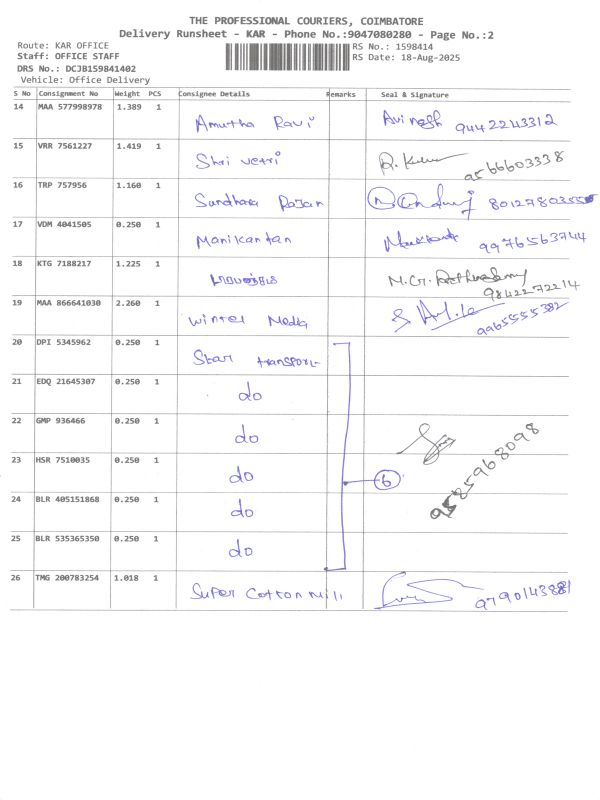 THE PROFESSIONAL COURIERS, COIMBATORE
Delivery Runsheet - KAR - Phone No.:9047080280 - Page No.:2
Route: KAR OFFICE RS No.: 1598414
Staff: OFFICE STAFF RS Date: 18-Aug-2025
DRS No.: DCJB159841402
Vehicle: Office Delivery
S No Consignment No Weight PCS Consignee Details Remarks Seal & Signature
14 MAA 577998978 1.389 1 Amutha Ravi Avinash 9442243312
15 VRR 7561227 1.419 1 Shri vetri 9566603338
16 TRP 757956 1.160 1 Sundhara Rajan
17 VDM 4041505 0.250 1 Manikantan 9976563744
18 KTG 7188217 1.225 1 9842272214
19 MAA 866641030 2.260 1 Winter Media 9965555382
20 DPI 5345962 0.250 1 Star transport
21 EDQ 21645307 0.250 1 do
22 GMP 936466 0.250 1 do
23 HSR 7510035 0.250 1 do 6 9585968098
24 BLR 405151868 0.250 1 do
25 BLR 535365350 0.250 1 do
26 TMG 200783254 1.018 1 Super Cotton Mill